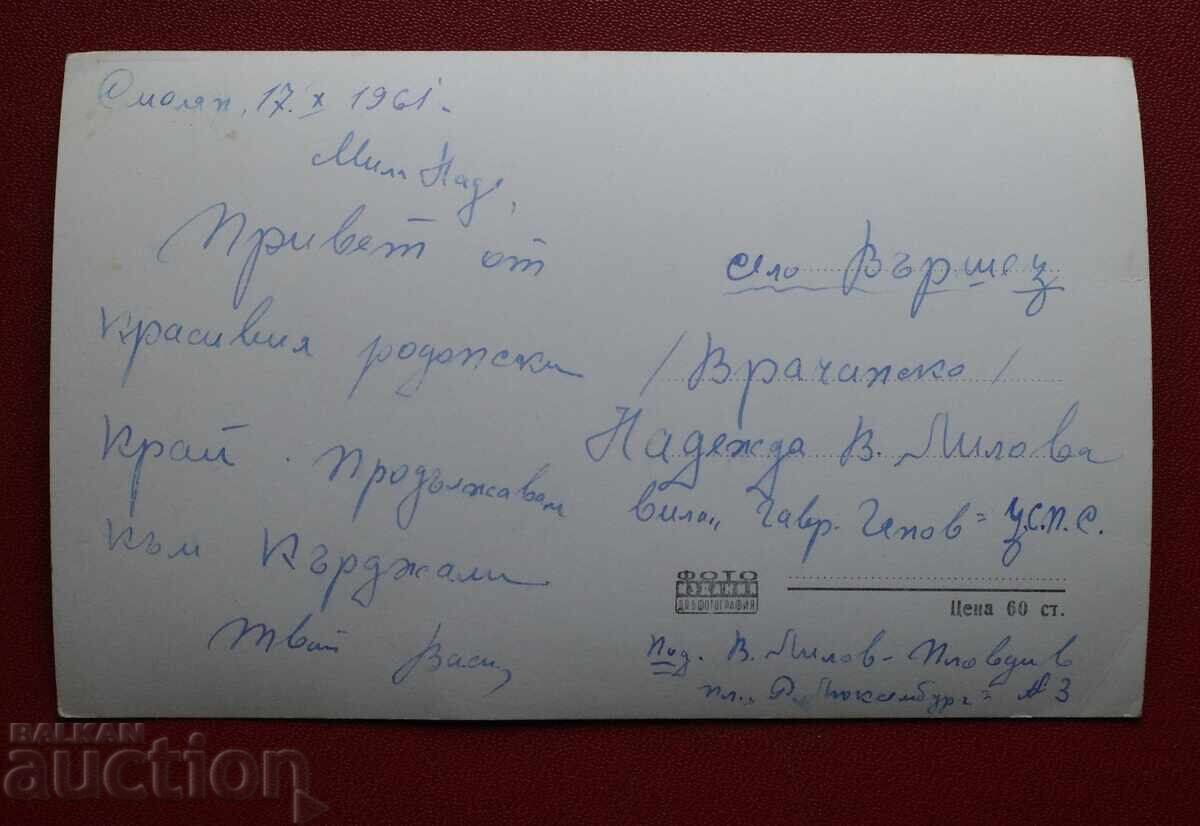 Смолян, 17. X 1961.
Мила Наде,
Привет от
красивия родопски
край. Продължавам
към Кърджали
Твой Васил
село Вършец
/Врачанско/
Надежда В. Лилова
вила „Гавр. Генов" Ц.С.П.С.
ФОТО
ДПФОТОГРАФИЯ
Цена 60 ст.
под. В. Лилов - Пловдив
пл. „Р. Люксембург" № 3
BALKAN
auction